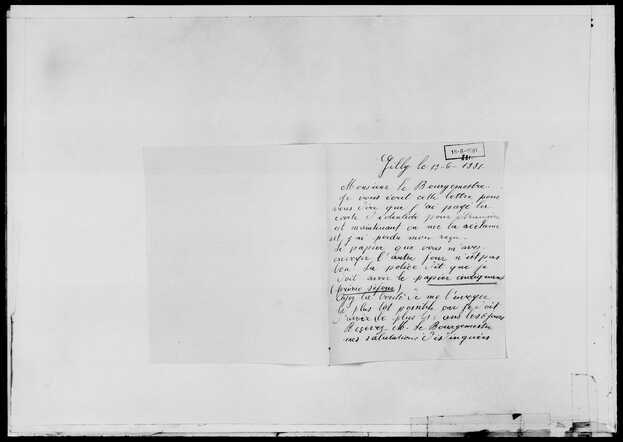 Gilly le 13-6-1931.
Monsieur le Bourgemestre.
Je vous écrit cette lettre pour
vous dire que j'ai payé la
carte d'identide pour
et maintenant on me la réclame
et j'ai perdu mon reçu.
le papier que vous m'aves
envoyer l'autre jour n'est pas
bon la police dit que je
doit avoir le papier
(
Ayez la bonté de me l'envoyer
le plus tôt possible car je doit
de plus
Recevez M. le Bourgemestre
mes salutations distinguées